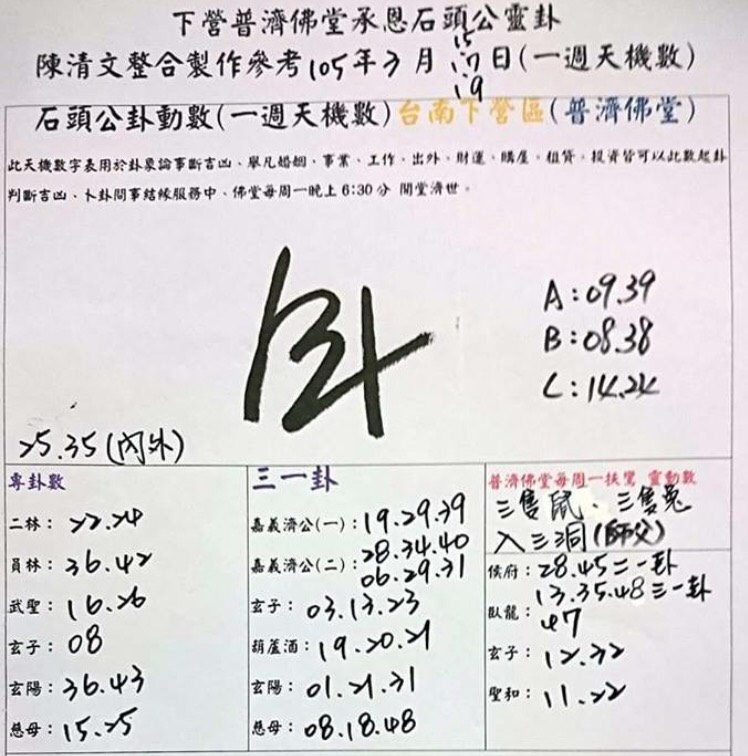 下營普濟佛堂承恩石頭公靈卦
陳清文整合製作參考105年3月15.17.19日(一週天機數)
石頭公卦動數(一週天機數)台南下營區(普濟佛堂)
此天機數字表用於卦象論事斷吉凶、舉凡婚姻、事業、工作、出外、財運、購屋、租賃、投資皆可以此數起卦
判斷吉凶、卜卦問事結緣服務中、佛堂每周一晚上6:30分 開堂濟世。
A:09.39
B:08.38
C:14.24
25.35(內外)
專卦數
二林:22.24
員林:36.42
武聖:16.26
玄子:08
玄陽:36.43
慈母:15.25
三一卦
嘉義濟公(一):19.29.39
嘉義濟公(二):28.34.40
06.29.31
玄子:03.13.23
葫蘆酒:19.20.21
玄陽:01.21.31
慈母:08.18.48
普濟佛堂每周一扶鸞 靈動數
三隻鼠、三隻兔
入三洞(師父)
侯府:28.45二一卦
13.35.48三一卦
臥龍:47
玄子:12.32
聖和:11.22